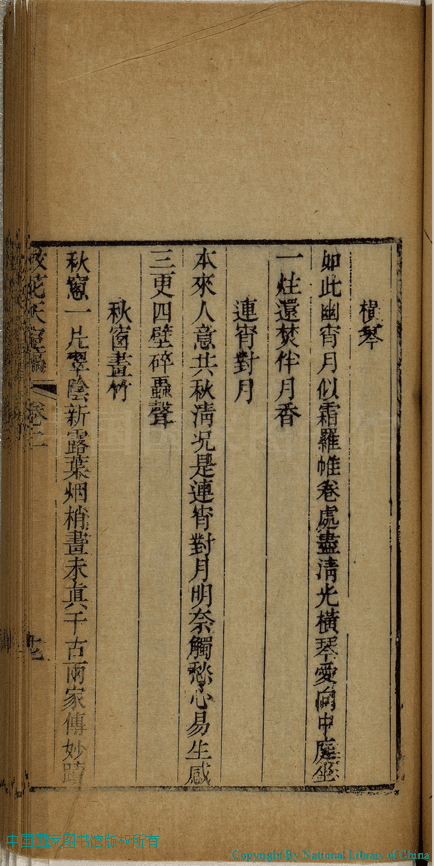 橫琴
如此幽宵月似霜羅帷卷處盡清光橫琴愛向中庭坐
一炷還焚伴月香
連宵對月
本來人意共秋清况是連宵對月明奈觸愁心易生感
三更四壁碎蟲聲
秋窗畫竹
秋窻一片翠陰新露葉烟梢畫未眞千古兩家傳妙蹟
卷二
十七
中国国家图书馆版权所有
Copyright By National Library of China